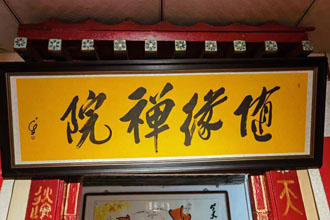 随缘禅院